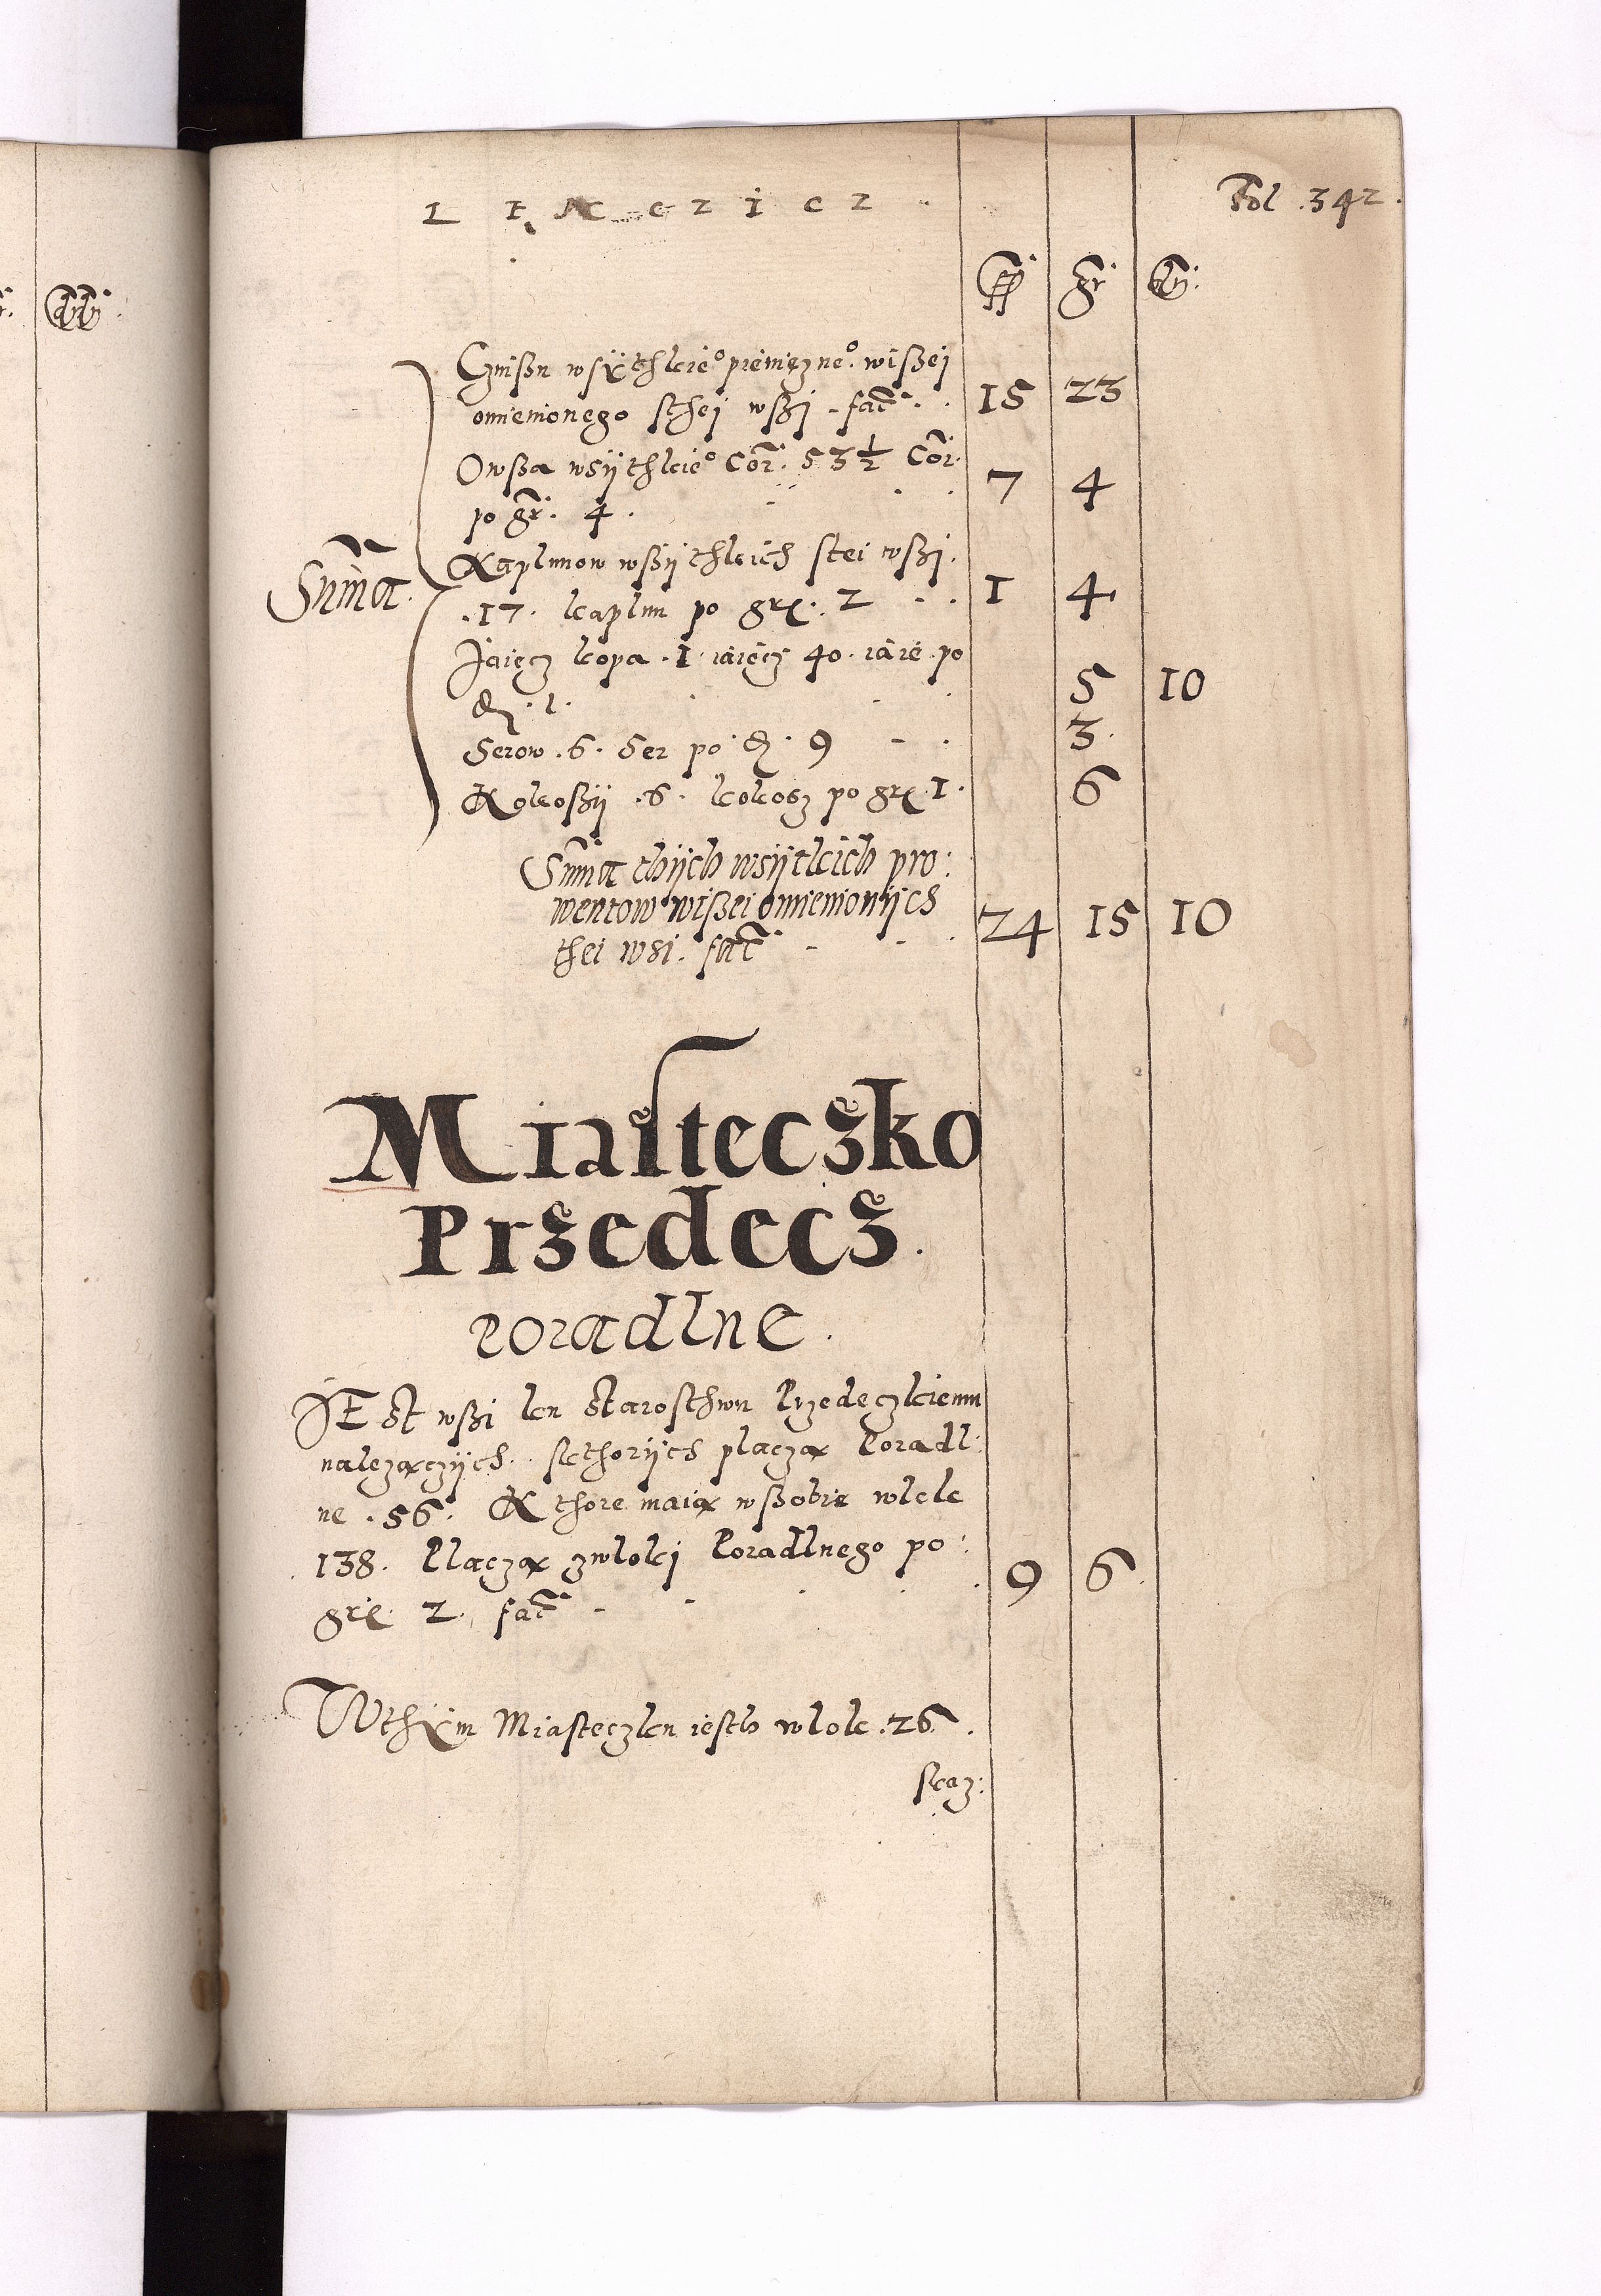 L E N C Z I C Z
Fol. 342.
fl. gr. d.
Czinßu wsÿthkieº pieniężneº wißei
omienionego sthei wßi - fac̃ 15 23
Owßa wsÿthkieº Cor. 53 ½ Cor.
po gr. 4. 7 4
Kaplunow wßÿthkich stei wßi.
Suma.
.17. kaplun po grą. 2 1 4
Jaięcz kopa .1. iaięcz 40. iaie po
d. 1. 5 10
Serow .6. Ser po d. 9 3.
Kokoßÿ .6. kokosz po grą 1. 6
Suma thÿch wsÿtkich pro:
wentow wißei omienionÿch
thei wsi. fac̃ 24 15 10
Miasteczko
Przedecz.
Poradlne.
JESt wßi ku Starosthwu Przedeczkiemu
należączÿch. Kthorÿch płaczą Poradl:
ne .56. Kthore maią wßobie wlok
138. Płaczą zwloki Poradlnego po:
grą 2. fac̃ 9 6.
Wthÿm Miasteczku iesth wlok .26.
Kaz: